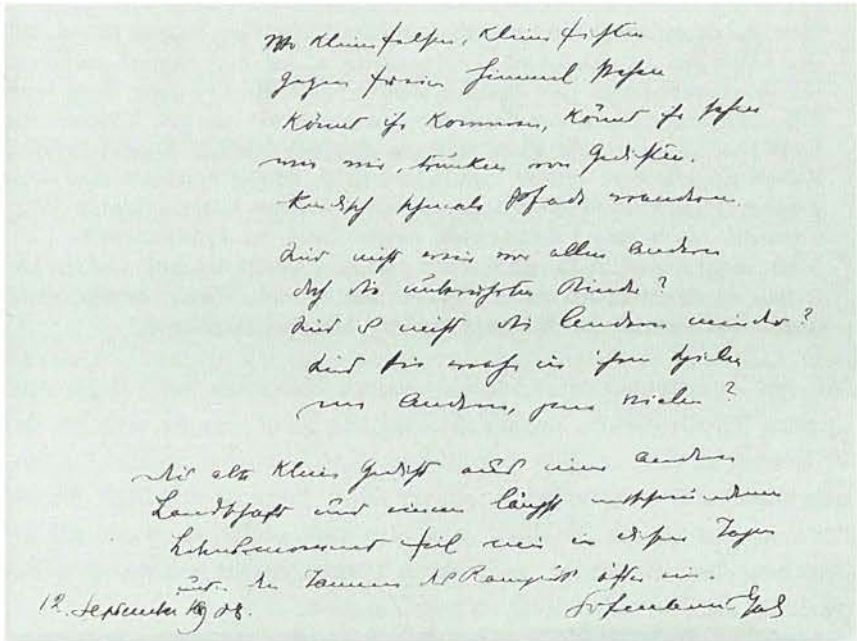 Wo kleine Felsen, kleine Fichten
gegen freien Himmel stehen
könnt ihr kommen, könnt ihr sehen
wie wir, trunken von Gedichten.
kindlich schmale Pfade wandern.
Sind nicht wir vor allen andern
doch die unberührten Kinder?
Sind es nicht die andern minder?
Sind sie wahr in ihren Spielen
andern, jene vielen?
alte kleine Gedicht aus einer andern
Landschaft und einem längst entschwundenen
Lebensmoment fiel mir in diesen Tagen
unter den Tannen des Ramgut öfter ein.
12. September 1908. Hofmannsthal